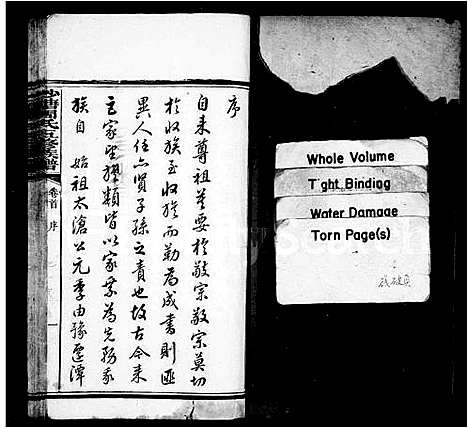 序
自来尊祖莫要於敬宗敬宗莫切
於收族至收族而勒為成書則匪
異人任亦賢子孫之責也故古今来
巨家望族類皆以家乘為先務我
族自 始祖太滄公元季由豫遷潭
周氏五修族譜
卷首
序
一
Whole Volume
Tight Binding
Water Damage
Torn Page(s)